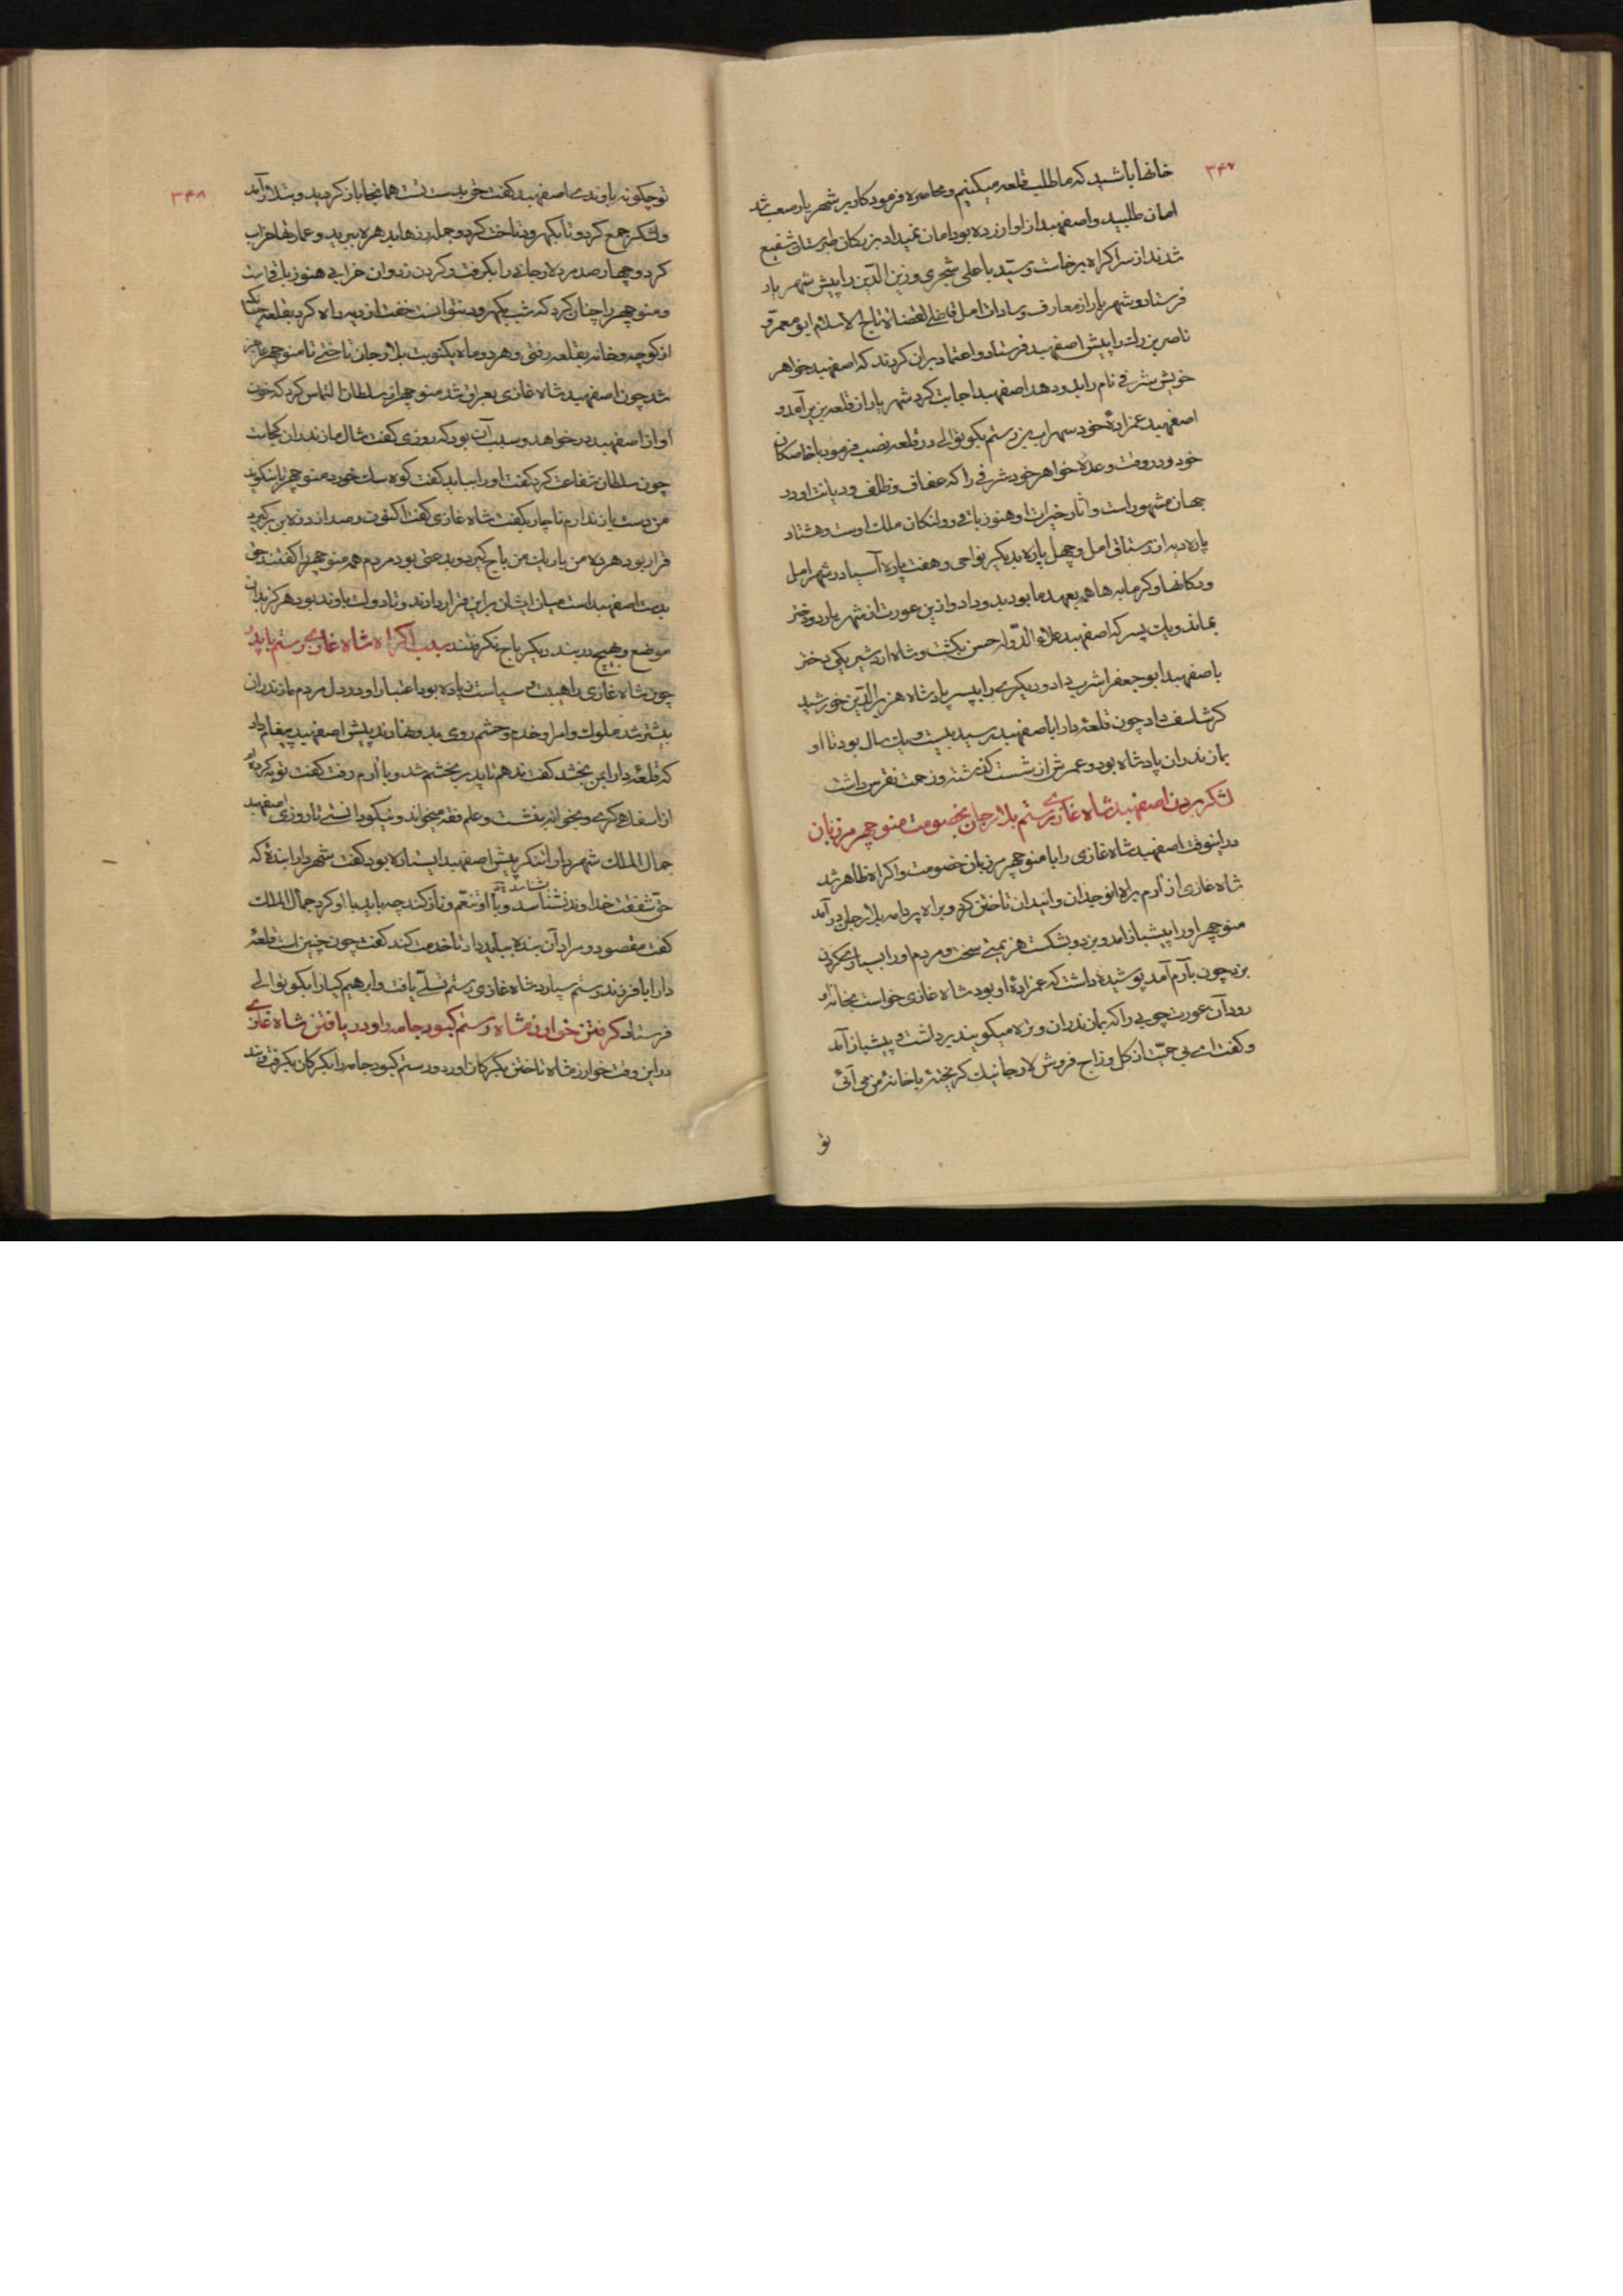 ۳۴۷
خانها باشید که ما طلب قلعه میکنیم و محاصره فرمود کار بر شهریار صعب شد
امان طلبید و اصفهبد از او آزرده بود امان نمیداد بزرگان طبرستان شفیع
شدند از سر اکراه برخاست و سید با علی شجری و زین الدین را پیش شهریار
فرستاد و شهریار از معارف و سادات امل قاضی القضاة تاج الاسلام ابو معمر و
ناصر بن را پیش اصفهبد فرستاد و اعتماد بران کردند که اصفهبد خواهر
خویش شرفی نام را بدو دهد اصفهبد اجابت کرد شهریار از قلعه بزیر آمد و
اصفهبد عمزادهٔ خود سهراب بن رستم بکوتوالی در قلعه نصب فرمود با خاصکان
خود و در وقت وعده خواهر خود شرفی را که عفاف و ظلف و دیانت او در
جهان مشهور است و آثار خیرات او هنوز باقی و دکان ملک اوست و هشتاد
پاره دیه از رستاق امل و چهل پاره بدیگر نواحی و هفت پاره آسیا در شهر امل
و دکانها و کرمابه ها همه بعهد ما بود بدو داد و ازین عورت از شهریار دو دختر
بماند و یک پسر که اصفهبد علاء الدوله حسن بکشت و شاه اردشیر یکی دختر
باصفهبد ابو جعفر اشرب داد و دیکری را بپسر پادشاه هزبر الدین خورشید
کرشاسف داد چون قلعهٔ دارا باصفهبد رسید بیست و یک سال بود تا او
بمازندران پادشاه بود و عمرش از شست کذشته و زحمت نقرس داشت
لشکر بردن اصفهبد شاه غازی رستم بلارجان بخصومت منوچهر مرزبان
در اینوقت اصفهبد شاه غازی را با منوچهر مرزبان خصومت و اکراه ظاهر شد
شاه غازی از آرم براه انوجیدان و انیدان تاختن کرد و براه پردامه بلارجان در آمد
منوچهر او را پیشباز آمد و بزد و بشکست هزیمتی سخت و مردم او را بسیاری
بزد چون بآرم آمد پوشیده داشت که عمزادهٔ او بود شاه غازی خواست بخانه او
رود آن عورت چوبی را که بمازندران وزه میکویند برداشت و پیشباز آمد
و کفت ای بی حمیت از کل و زاج فروش لارجانیک کریختهٔ با خانهٔ من می آئی
تو
۳۴۸
تو چکونه باوندی اصفهبد کفت حق بدست تست هم از آنجا باز کردید و بتلار آمد
و لشکر جمع کرد و تا بکهرود تاخت کرد و جمله رزها بدهره ببرید و عمارتها خراب
کرد و چهارصد مرد لارجانی را بکرفت و کردن زد و آن خرابی هنوز باقیست
و منوچهر را چنان کرد که شب بکهرود نتوانست خفت از دیه راه کرد بقلعه
از کوچه و خانه بقلعه رفتی و هر دو ماه یکنوبت بلارجان تاختی تا منوچهر عاجز
شد چون اصفهبد شاه غازی بعراق شد منوچهر از سلطان التماس کرد که خون
او از اصفهبد در خواهد و سبب آن بود که روزی کفت شال مازندران کجاست
چون سلطان شفاعت کرد کفت او را بباید کفت کوه سک خورد منوچهر
من دست باز ندارم ناچار بکفت شاه غازی کفت اکنون رصد از دره بر کیرد
قرار بود هر ده من بار یک من باج کیرد و بدعتی بود مردم همه منوچهر را کفتند حق
بدست اصفهبد است میان ایشان بر این قرار دادند و تا دولت باوند بود هرکز بدان
موضع و هیچ دربند دیکر باج نکرفتند سبب اکراه شاه غازی رستم با پدر
چون شاه غازی را هیبت و سیاست زیاده بود اعتبار او در دل مردم مازندران
بیشتر شد ملوک و امرا و خدم و حشم روی بدو نهادند پیش اصفهبد پیغام داد
که قلعهٔ دارا بمن بخشد کفت ندهم تا پدر بخشم شد و با آرم رفت کفت توبه کرده ام
از اسفاهی کری و بخوانه بنشست و علم فقه میخواند و نیکو دانستی تا روزی اصفهبد
جمال الملک شهردار لشکر پیش اصفهبد ایستاده بود کفت شهردار بندهٔ که
حق شفقت خداوند نشناسد و با او تنعم و ناز کند چه باید با او کرد جمال الملک
کفت مقصود و مراد آن بنده بباید داد تا خدمت کند کفت چون چنین است قلعهٔ
دارا با فرزند رستم سپارد شاه غازی رستم تسلی یافت و ابرهیم کیا را بکوتوالی
فرستاد کرفتن خوارزمشاه رستم کبود جامه را و دریافتن شاه غازی
در این وقت خوارزمشاه تاختن بکبرکان آورد و رستم کبود جامه را بکرکان بکرفت و بند